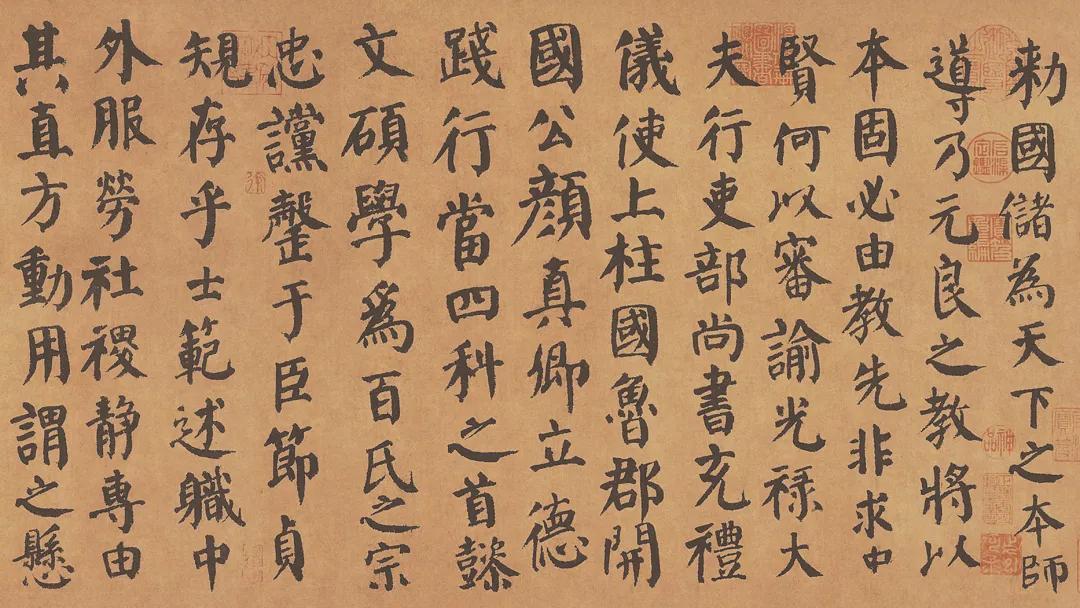 勅國儲為天下之本師
導乃元良之教將以
本固必由教先非求中
賢何以審諭光祿大
夫行吏部尚書充禮
儀使上柱國魯郡開
國公顏真卿立德
踐行當四科之首懿
文碩學爲百氏之宗
忠讜罄于臣節貞
規存乎士範述職中
外服勞社稷靜專由
其直方動用謂之懸